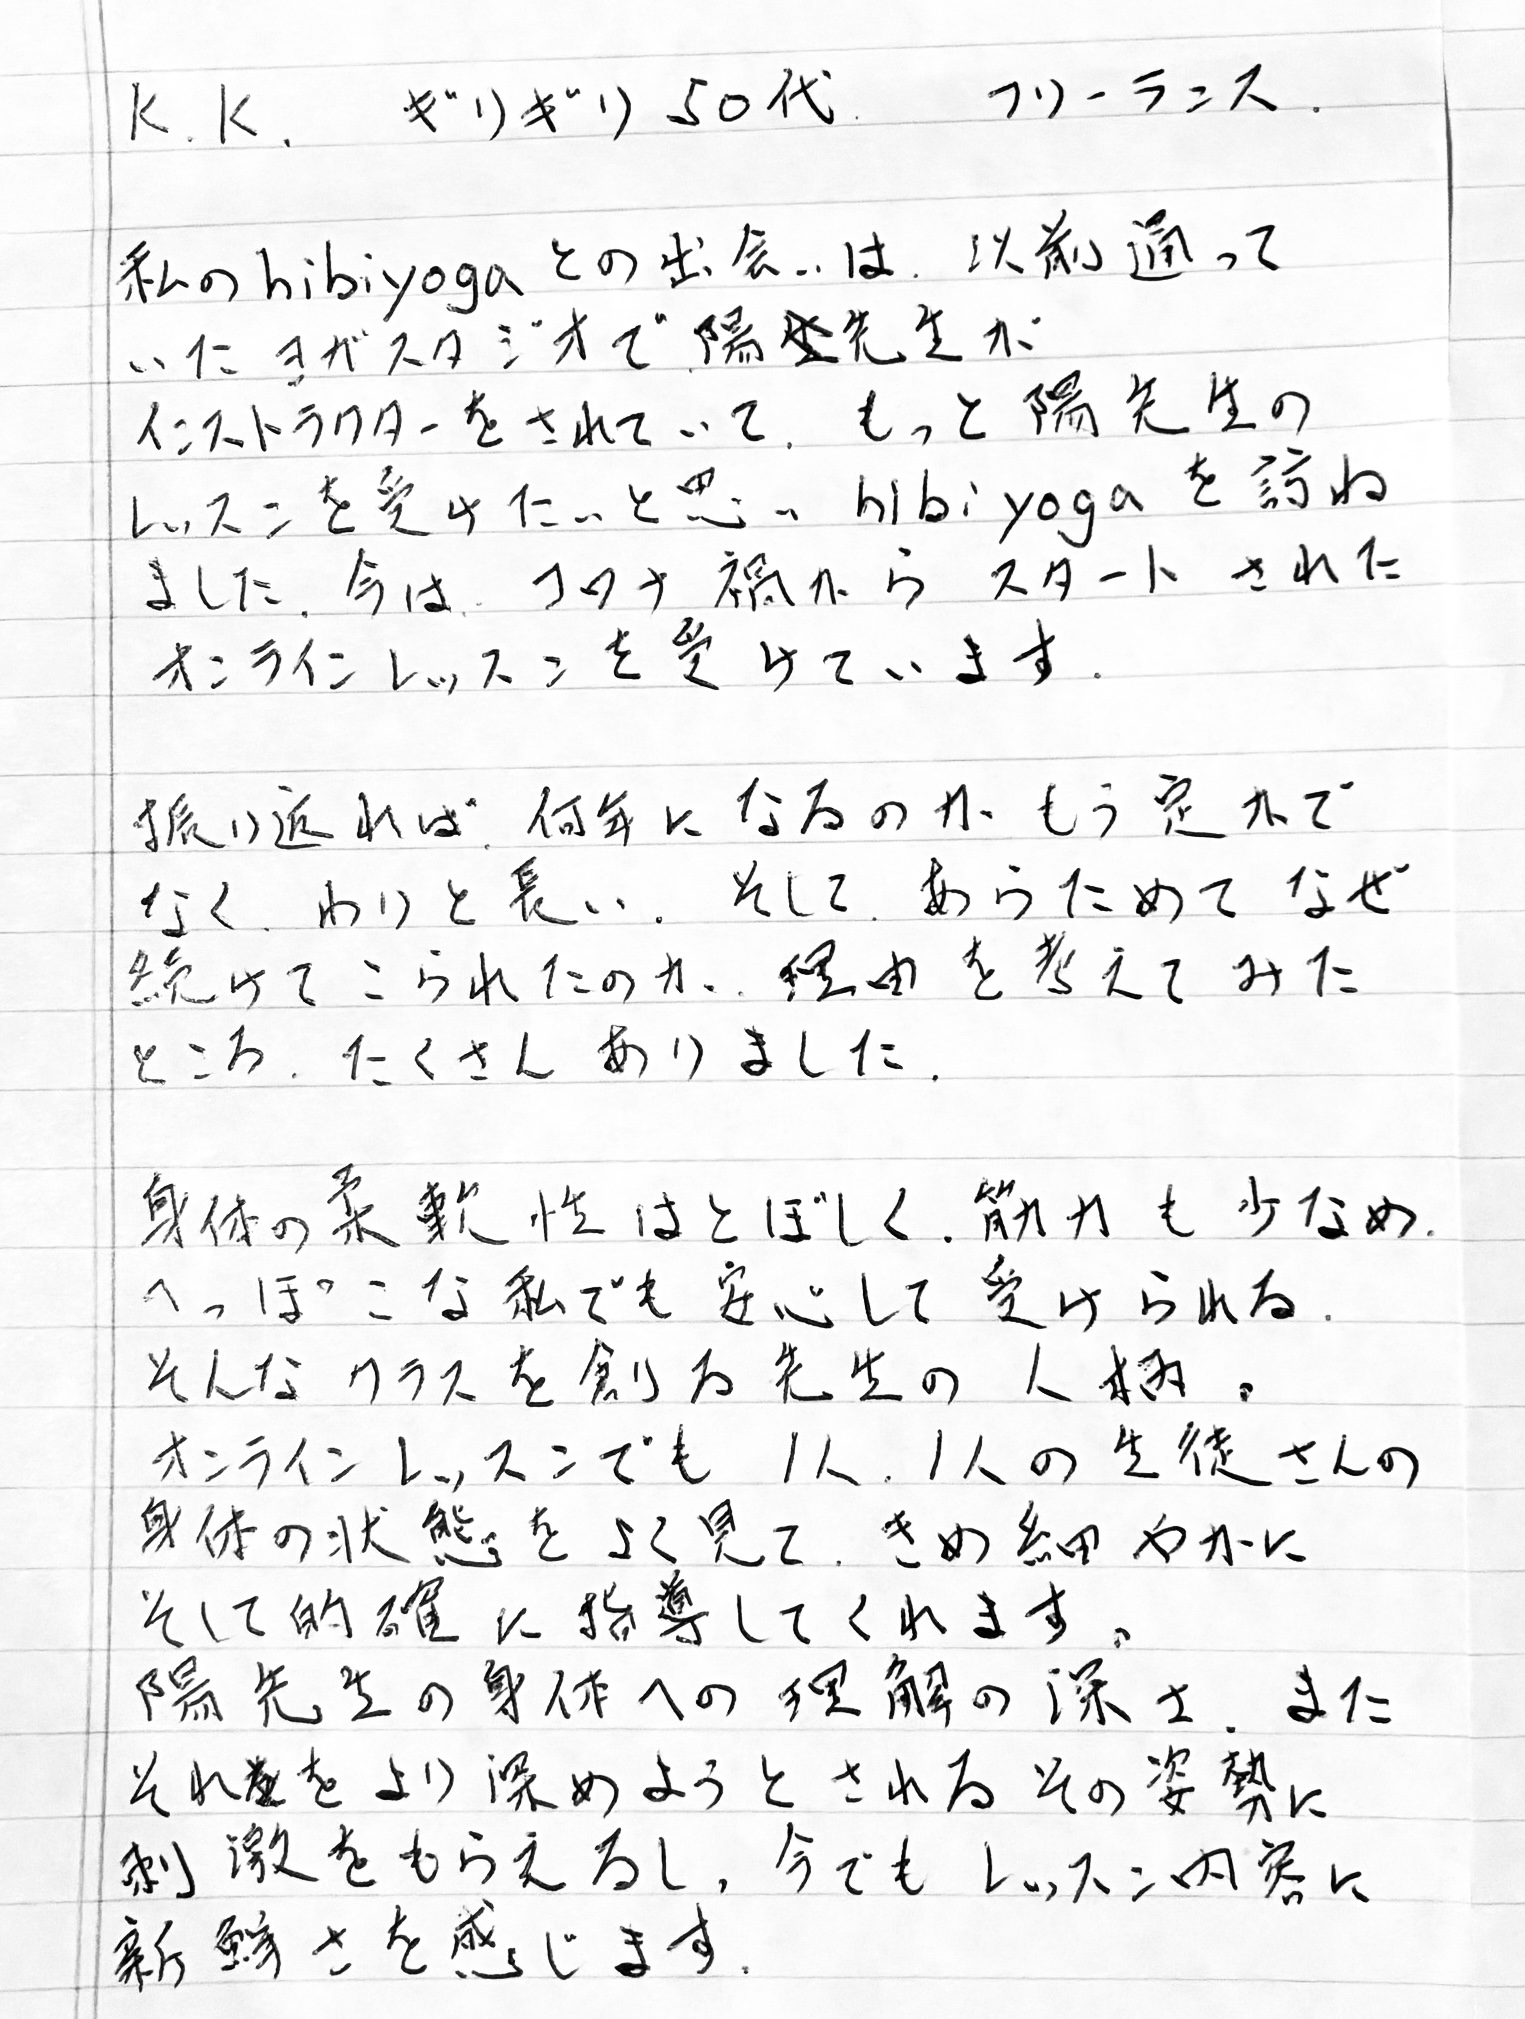 K.K. ギリギリ50代. フリーランス.
私のhibiyogaとの出会いは、以前通って
いたヨガスタジオで陽先生が
インストラクターをされていて、もっと陽先生の
レッスンを受けたいと思い hibiyogaを訪ね
ました。今は、コロナ禍からスタートされた
オンラインレッスンを受けています。
振り返れば、何年になるのかもう定かで
なく、わりと長い。そして、あらためてなぜ
続けてこられたのか、理由を考えてみた
ところ、たくさんありました。
身体の柔軟性はとぼしく、筋力も少なめ、
へっぽこな私でも安心して受けられる、
そんなクラスを創る先生の人柄。
オンラインレッスンでも1人、1人の生徒さんの
身体の状態をよく見て、きめ細やかに
そして的確に指導してくれます。
陽先生の身体への理解の深さ、また
それをより深めようとされるその姿勢に
刺激をもらえるし、今でもレッスン内容に
新鮮さを感じます。